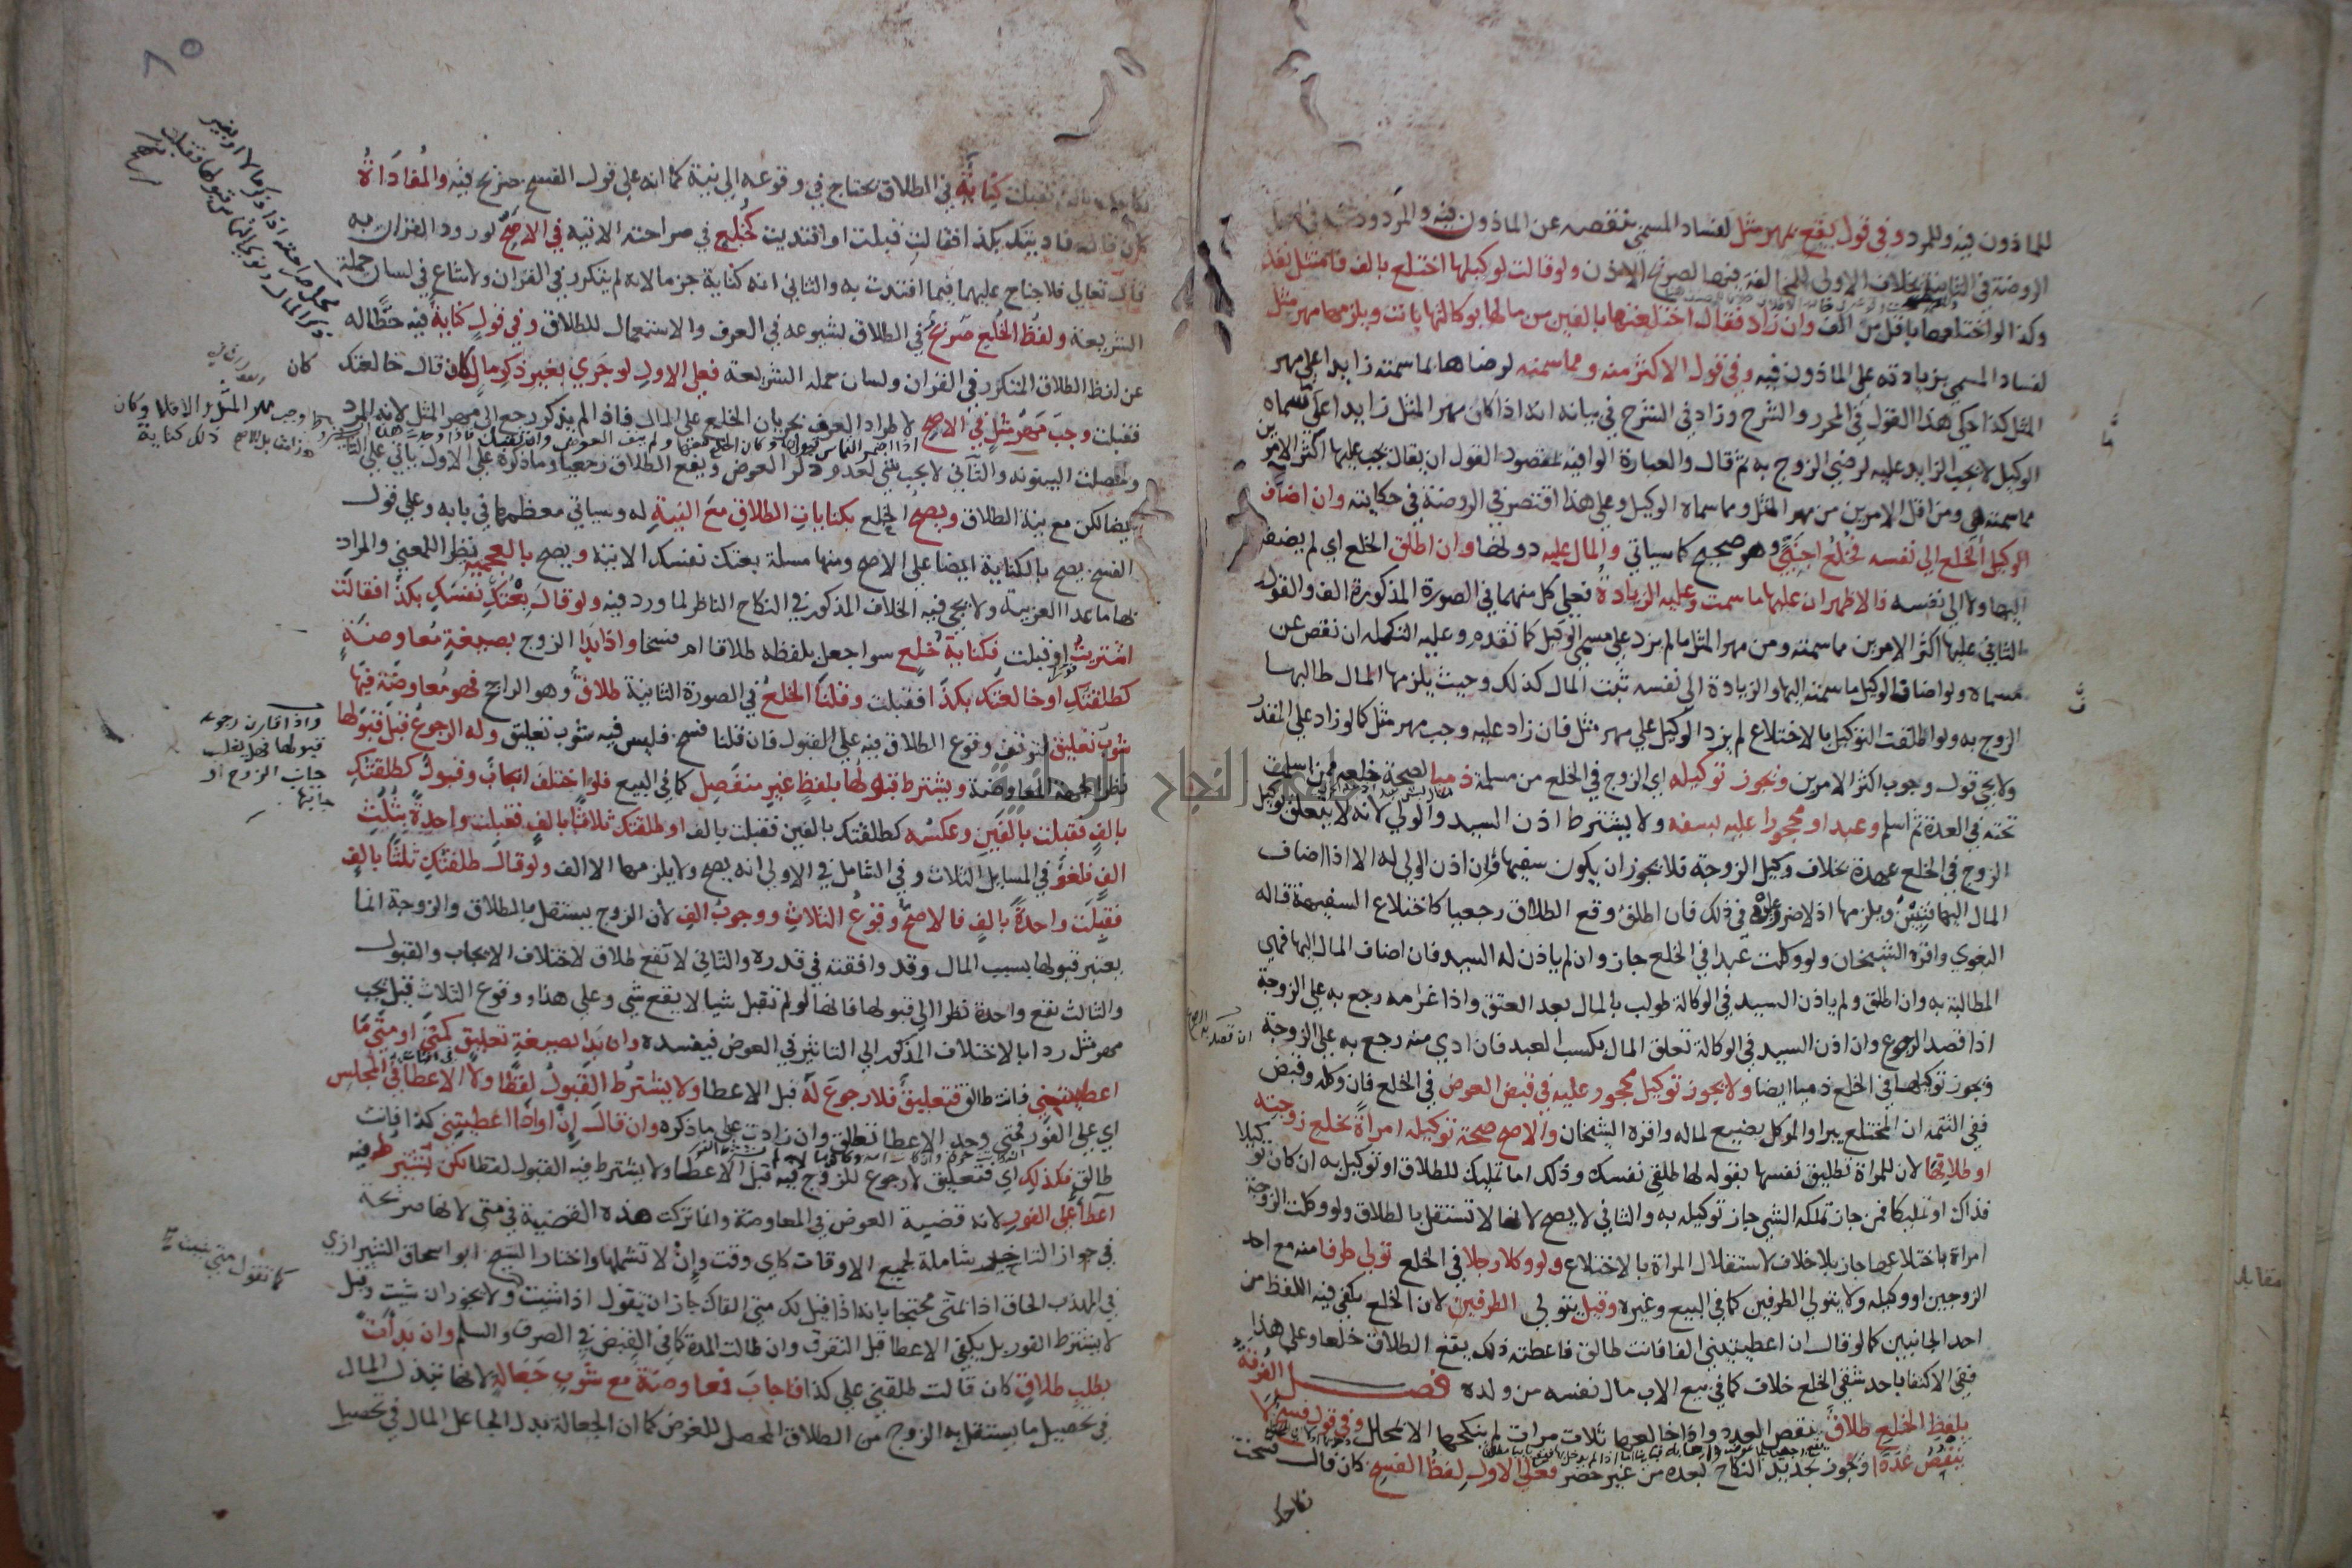 للماذون فيه وللمرد وفي قول يقع بمهر مثل لفساد المسمى بنقصه عن الماذون فيه والمردود
الروضة في الثانية بخلاف الاولى للمخالفة فيها لصريح الاذن ولو قالت لوكيلها اختلع بالف فامتثل نفذ
وكذا لو اختلعها باقل من الف وان زاد فقال اختلعتها بالفين من مالها بوكالتها بانت ويلزمها مهر مثل
لفساد المسمى بزيادته على الماذون فيه وفي قول الاكثر منه ومما سمته لرضاها بما سمته زايدا على مهر
المثل كذا حكي هذا القول في المحرر والشرح وزاد في الشرح في بيانه انه اذا كان مهر المثل زايدا على ما سماه
الوكيل لا يجب الزايد عليه لرضى الزوج به ثم قال والعبارة الوافية بمقصود القول ان يقال يجب عليها اكثر الامرين
مما سمته هي ومن اقل الامرين من مهر المثل ومما سماه الوكيل وعلى هذا اقتصر في الروضة في حكايته وان اضاف
الوكيل الخلع الى نفسه فخلع اجنبي وهو صحيح كما سياتي والمال عليه دونها وان اطلق الخلع اي لم يضفه
اليها ولا الى نفسه فالاظهر ان عليها ما سمت وعليه الزيادة فعلى كل منهما في الصورة المذكورة الف والقول
الثاني عليها اكثر الامرين مما سمته ومن مهر المثل ما لم يزد على مسمى الوكيل كما تقدم وعليه التكملة ان نقص عن
مسماه ولو اضاف الوكيل ما سمته اليها والزيادة الى نفسه ثبت المال كذلك وحيث يلزمها المال طالبها
الزوج به ولو اطلقت التوكيل بالاختلاع لم يزد الوكيل على مهر مثل فان زاد عليه وجب مهر مثل كما لو زاد على المقدر
ولا يجي قول وجوب اكثر الامرين ويجوز توكيله اي الزوج في الخلع من مسلمة ذميا لصحة خلعه فمن اسلمت
تحته في العدة ثم اسلم وعبدا ومحجورا عليه بسفه ولا يشترط اذن السيد والولي لانه لا يتعلق بوكيل
الزوج في الخلع عهدة بخلاف وكيل الزوجة فلا يجوز ان يكون سفيها وان اذن الولي له الا اذا اضاف
المال اليها فتبين ويلزمها اذ لا ضرر عليه في ذلك فان اطلق وقع الطلاق رجعيا كاختلاع السفيهة قاله
البغوي واقره الشيخان ولو وكلت عبدا في الخلع جاز وان لم ياذن له السيد فان اضاف المال اليها فهي
المطالبة به وان اطلق ولم ياذن السيد في الوكالة طولب بالمال بعد العتق واذا غرمه رجع به على الزوجة
اذا قصد الرجوع وان اذن السيد في الوكالة تعلق المال بكسب العبد فان ادي منه رجع به على الزوجة
ويجوز توكيلها في الخلع ذميا ايضا ولا يجوز توكيل محجور عليه في قبض العوض في الخلع فان وكله وقبض
ففي التتمة ان المختلع يبرا والموكل مضيع لماله واقره الشيخان والاصح صحة توكيله امراة بخلع زوجته
او طلاقها لان للمراة تطليق نفسها بقوله لها طلقي نفسك وذلك اما تمليك للطلاق او توكيل به ان كان توكيلا
فذاك او تمليكا فمن جاز تملكه الشي جاز توكيله به والثاني لا يصح لانها لا تستقل بالطلاق ولو وكلت الزوجة
امراة باختلاعها جاز بلا خلاف لاستقلال المراة بالاختلاع ولو وكلا رجلا في الخلع تولى طرفا منه مع احد
الزوجين او وكيله ولا يتولى الطرفين كما في البيع وغيره وقيل يتولى الطرفين لان الخلع يكفي فيه اللفظ من
احد الجانبين كما لو قال ان اعطيتني الفا فانت طالق فاعطته ذلك يقع الطلاق خلعا وعلى هذا
ففي الاكتفا باحد شقي الخلع خلاف كما في بيع الاب مال نفسه من ولده فصل الفرقة
بلفظ الخلع طلاق ينقص العدد واذا خالعها ثلاث مرات لم ينكحها الا بمحلل وفي قول فسخ لا
ينقص عددا ويجوز تجديد النكاح بعده من غير حصر فعلى الاول لفظ الفسخ كان قال فسخت
نكاحك
ان قصد
مقابلة
٨٥
نكاحك بالف فقبلت كناية في الطلاق يحتاج في وقوعه الى نية كما انه على قول الفسخ صريح فيه والمفاداة
كان قال فاديتك بكذا فقالت قبلت او افتديت كخلع في صراحته الاتية في الاصح لورود القران به
قال تعالى فلا جناح عليهما فيما افتدت به والثاني انه كناية جزما لانه لم يتكرر في القران ولا شاع في لسان حملة
الشريعة ولفظ الخلع صريح في الطلاق لشيوعه في العرف والاستعمال للطلاق وفي قول كناية فيه حطا له
عن لفظ الطلاق المتكرر في القران ولسان حملة الشريعة فعلى الاول لو جرى بغير ذكر مال كان قال خالعتك
فقبلت وجب مهر مثل في الاصح لاطراد العرف بجريان الخلع على المال فاذا لم يذكر رجع الى مهر المثل لانه المرد
وحصلت البينونة والثاني لا يجب شي لعدم ذكر العوض ويقع الطلاق رجعيا وما ذكره على الاول ياتي على الثاني
ايضا لكن مع نية الطلاق ويصح الخلع بكنايات الطلاق مع النية له وسياتي معظمها في بابه وعلى قول
الفسخ يصح بالكناية ايضا على الاصح ومنها مسلة بعتك نفسك الاتية ويصح بالعجمية نظرا للمعنى والمراد
بها ما عدا العربية ولا يجي فيه الخلاف المذكور في النكاح الناظر لما ورد فيه ولو قال بعتك نفسك بكذا فقالت
اشتريت او قبلت فكناية خلع سوا جعل بلفظه طلاقا ام فسخا واذا بدا الزوج بصيغة معاوضة
كطلقتك او خالعتك بكذا فقبلت وقلنا الخلع في الصورة الثانية طلاق وهو الراجح فهو معاوضة فيها
شوب تعليق لتوقف وقوع الطلاق فيه على القبول فان قلنا فسخ فليس فيه شوب تعليق وله الرجوع قبل قبولها
نظرا لجهة المعاوضة ويشترط قبولها بلفظ غير منفصل كما في البيع فلو اختلف ايجاب وقبول كطلقتك
بالف فقبلت بالفين وعكسه كطلقتك بالفين فقبلت بالف او طلقتك ثلاثا بالف فقبلت واحدة بثلث
الف فلغو في المسايل الثلاث وفي الشامل في الاولى انه يصح ولا يلزمها الا الالف ولو قال طلقتك ثلثا بالف
فقبلت واحدة بالف فالاصح وقوع الثلاث ووجوب الف لان الزوج يستقل بالطلاق والزوجة انما
يعتبر قبولها بسبب المال وقد وافقته في قدره والثاني لا تقع طلاق لاختلاف الايجاب والقبول
والثالث تقع واحدة نظرا الى قبولها فانها لو لم تقبل شيا لا يقع شي وعلى هذا ووقوع الثلاث قيل يجب
مهر مثل ردا بالاختلاف المذكور الى التاثير في العوض فيفسده وان بدا بصيغة تعليق كمتى او متى ما
اعطيتني فانت طالق فتعليق فلا رجوع له قبل الاعطا ولا يشترط القبول لفظا ولا الاعطا في المجلس
اي على الفور فمتى وجد الاعطا تطلق وان زادت على ما ذكره وان قال ان او اذا اعطيتني كذا فانت
طالق فكذلك اي فتعليق لا رجوع للزوج فيه قبل الاعطا ولا يشترط فيه القبول لفظا لكن يشترط فيه
اعطا على الفور لانه قضية العوض في المعاوضة وانما تركت هذه القضية في متى لانها صريحة
في جواز التاخير شاملة لجميع الاوقات كاي وقت وان لا تشملها واختار الشيخ ابو اسحاق الشيرازي
في المهذب الحاق اذا بمتى محتجا بانه اذا قيل لك متى القاك جاز ان يقول اذا شيت ولا يجوز ان شيت وقيل
لا يشترط الفور بل يكفي الاعطا قبل التفرق وان طالت المدة كما في القبض في الصرف والسلم وان بدات
بطلب طلاق كان قالت طلقني على كذا فاجاب فمعاوضة مع شوب جعالة لانها تبذل المال
في تحصيل ما يستقل به الزوج من الطلاق المحصل للغرض كما ان الجعالة بذل الجاعل المال في تحصيل
واذا قارن رجوعه
قبولها فهل يغلب
جانب الزوج او
جانبها
كما تقول متى شيت